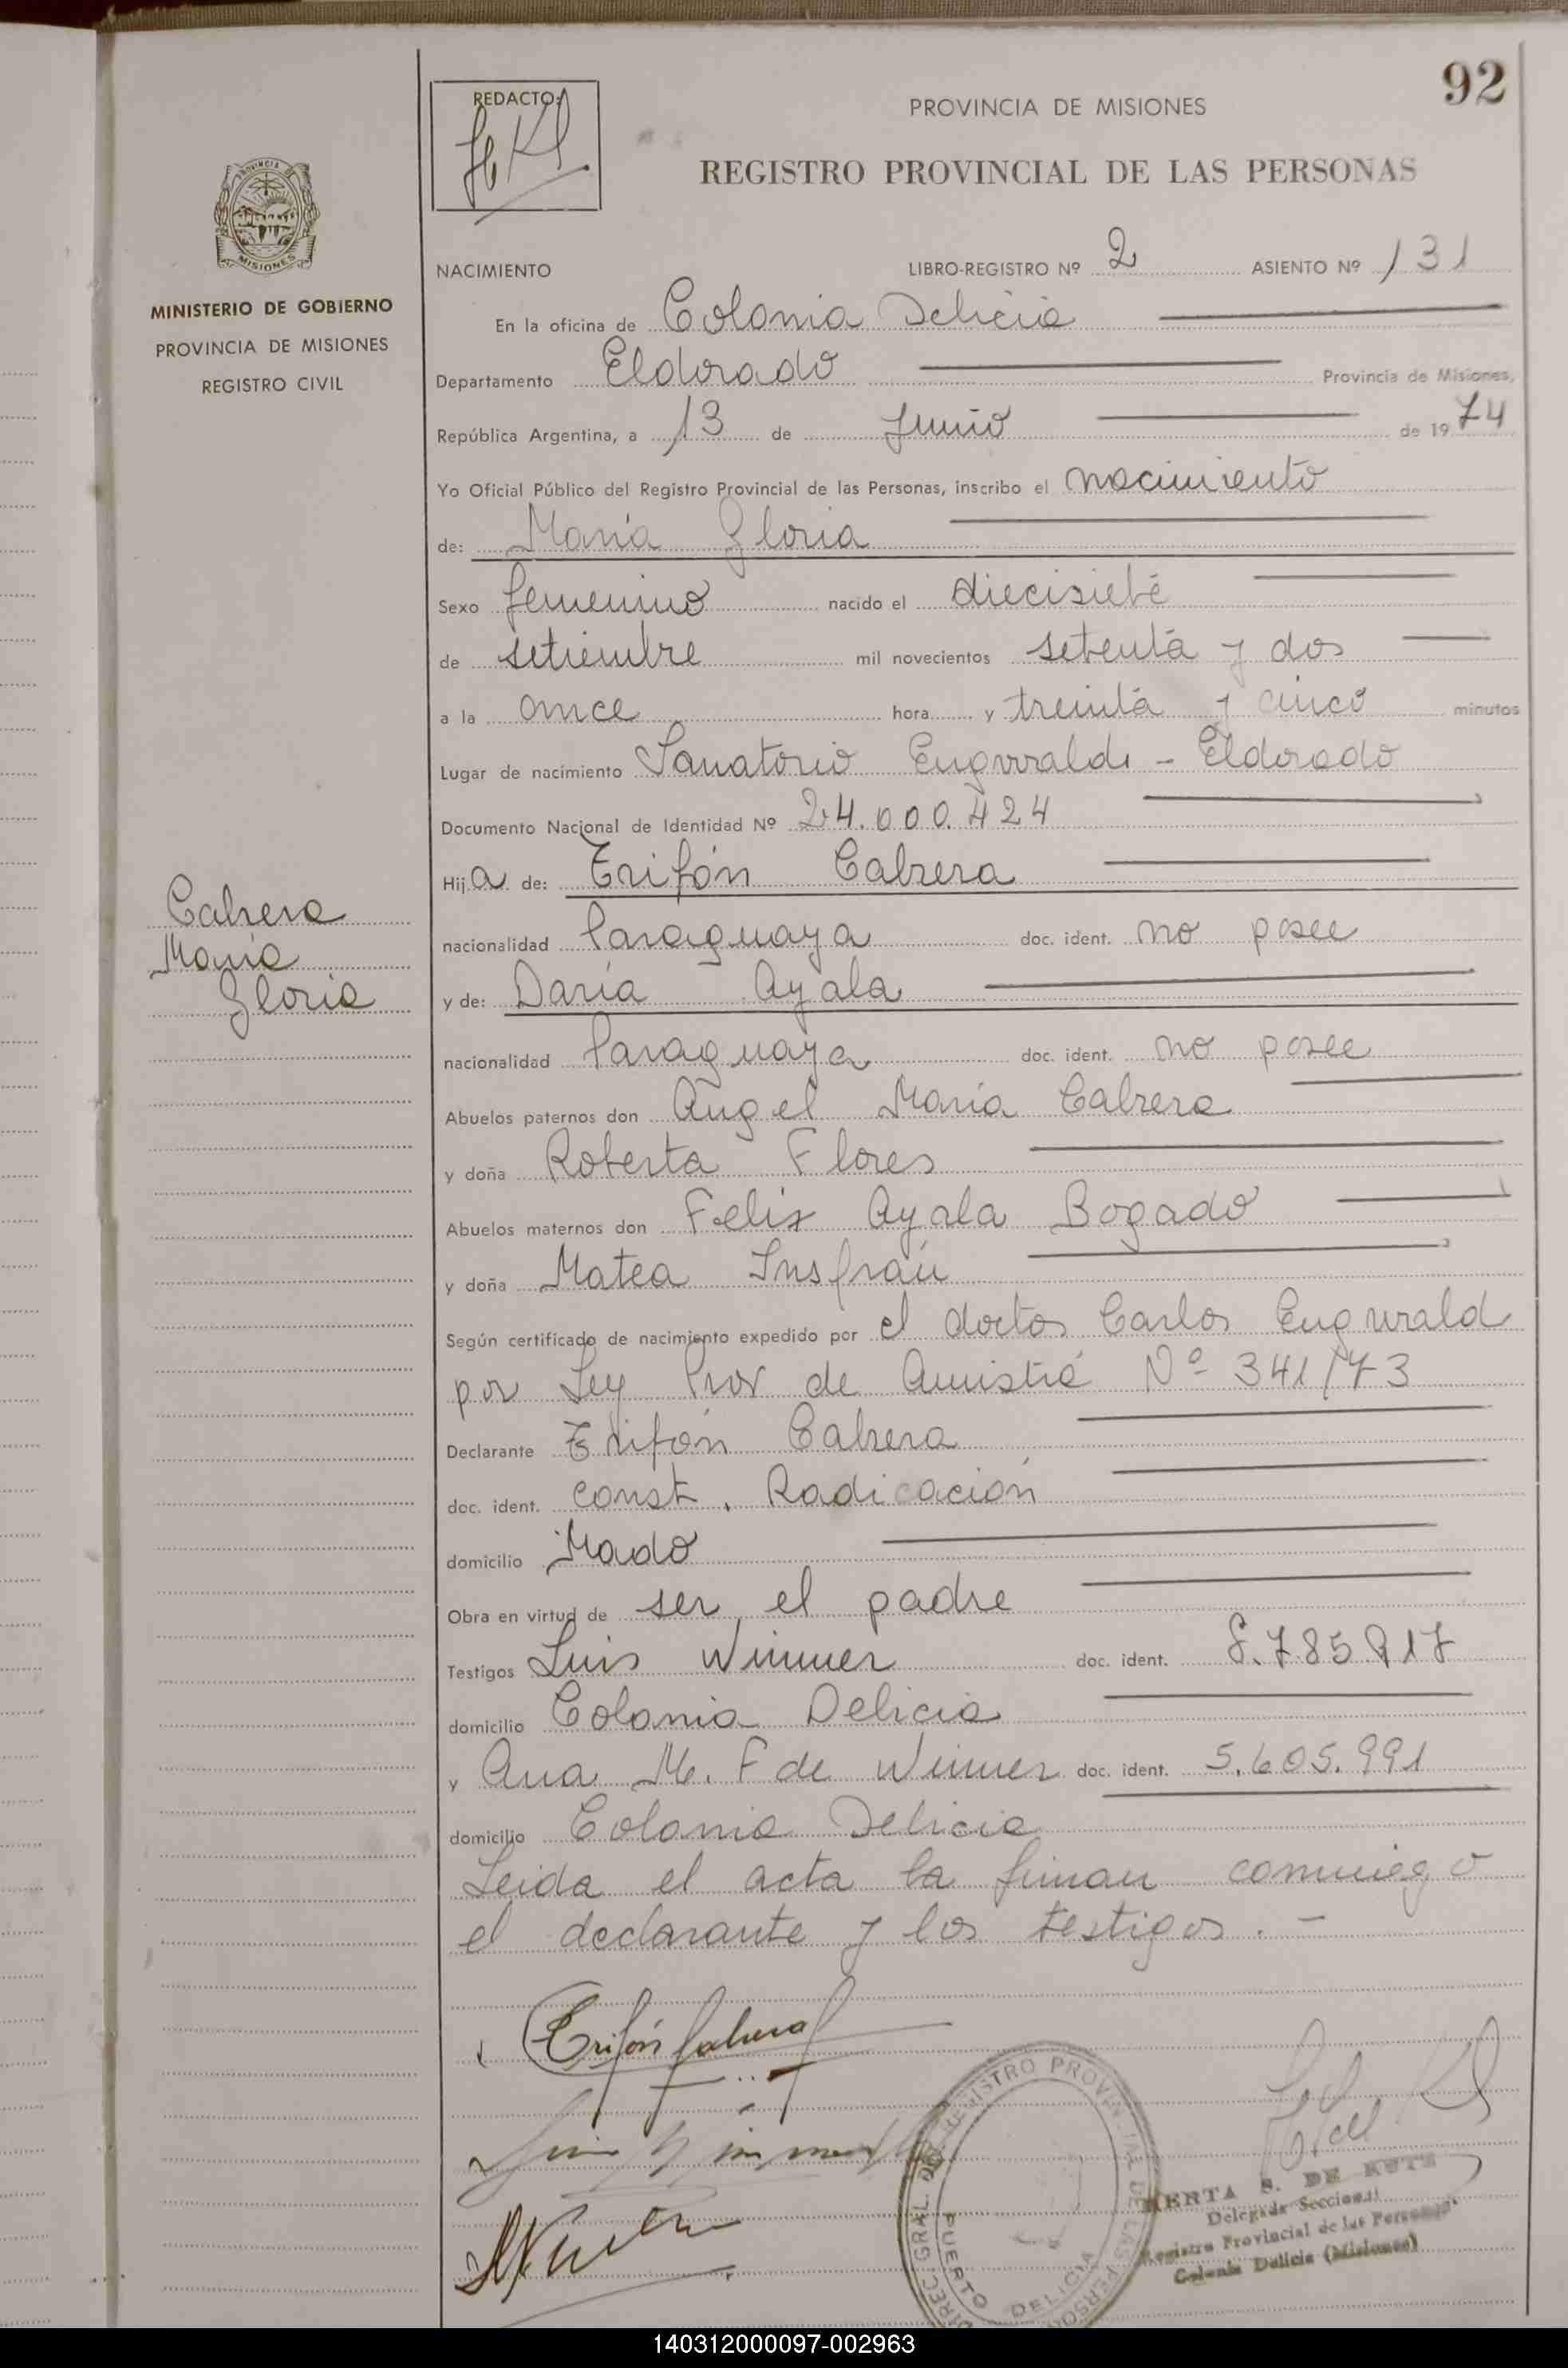 92
REDACTO:
PROVINCIA DE MISIONES
REGISTRO PROVINCIAL DE LAS PERSONAS
PROVINCIA DE
MISIONES
MINISTERIO DE GOBIERNO
PROVINCIA DE MISIONES
REGISTRO CIVIL
NACIMIENTO LIBRO-REGISTRO Nº 2 ASIENTO Nº 131
En la oficina de Colonia Delicia
Departamento Eldorado Provincia de Misiones,
República Argentina, a 13 de Junio de 1974
Yo Oficial Público del Registro Provincial de las Personas, inscribo el nacimiento
de: María Gloria
Sexo femenino nacido el diecisiete
de setiembre mil novecientos setenta y dos
a la once hora y treinta y cinco minutos
Lugar de nacimiento Sanatorio Engwald - Eldorado
Documento Nacional de Identidad Nº 24.000.424
Hija de: Trifón Cabrera
Cabrera
María
Gloria
nacionalidad Paraguaya doc. ident. no posee
y de: Daría Ayala
nacionalidad Paraguaya doc. ident. no posee
Abuelos paternos don Angel María Cabrera
y doña Roberta Flores
Abuelos maternos don Felix Ayala Bogado
y doña Matea Insfrán
Según certificado de nacimiento expedido por el doctor Carlos Engwald
por Ley Prov de Amistia Nº 341/73
Declarante Trifón Cabrera
doc. ident. const. Radicación
domicilio Mado
Obra en virtud de ser el padre
Testigos Luis Wimmer doc. ident. 8.785.917
domicilio Colonia Delicia
y Ana M. F de Wimmer doc. ident. 5.605.991
domicilio Colonia Delicia
Leida el acta la firman conmigo
el declarante y los testigos. -
Trifón Cabrera
DIREC. GRAL. DEL REGISTRO PROVINCIAL DE LAS PERSONAS
PUERTO DELICIA
S. DE KUTZ
Delegada Seccional
Registro Provincial de las Personas
Colonia Delicia (Misiones)
140312000097-002963